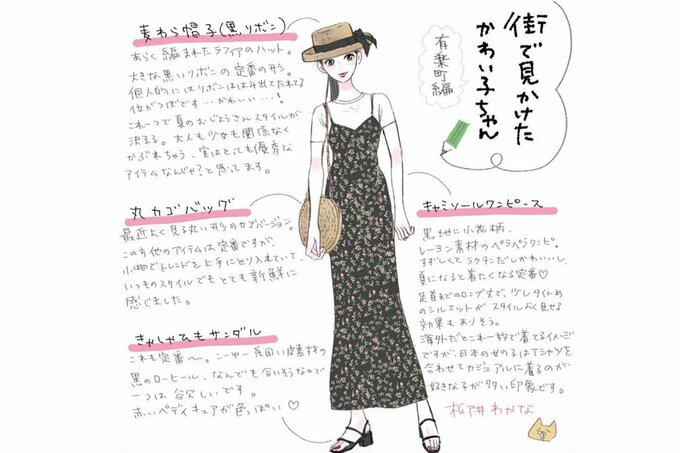 街で見かけた
かわい子ちゃん
有楽町編
麦わら帽子(黒リボン)
あらく編まれたラフィアのハット。
大きな黒いリボンの定番の形。
個人的にはリボンははみ出てたれてる
位がつぼです…かわいい…!
これ一つで夏のおじょうさんスタイルが
決まる。大人も少女も関係なく
かぶれちゃう、実はとても優秀な
アイテムなんじゃ?と思ってます。
丸カゴバッグ
最近よく見る丸い形のカゴバージョン。
この方他のアイテムは定番ですが、
小物でトレンドを上手にとり入れていて
いつものスタイルでもとても新鮮に
感じました。
きゃしゃひもサンダル
これも定番〜。こーゆー兵固い皮素材の
黒のローヒール、なんでも合いそうなので
一つは欲しいです。
赤いペディキュアが色っぽい♡
キャミソールワンピース
黒地に小花柄、
レーヨン素材のペラペラワンピ。
すずしくてラクチンだしかわいいし、
夏になると着たくなる定番♡
足首までのロング丈で、少しタイトめ
のシルエットがスタイルよく見せる
効果もありそう。
海外だとこれ一枚で着てるイメージ
ですが、日本の女の子はTシャツを
合わせてカジュアルに着るのが
好きな子が多い印象です。
松井わかな